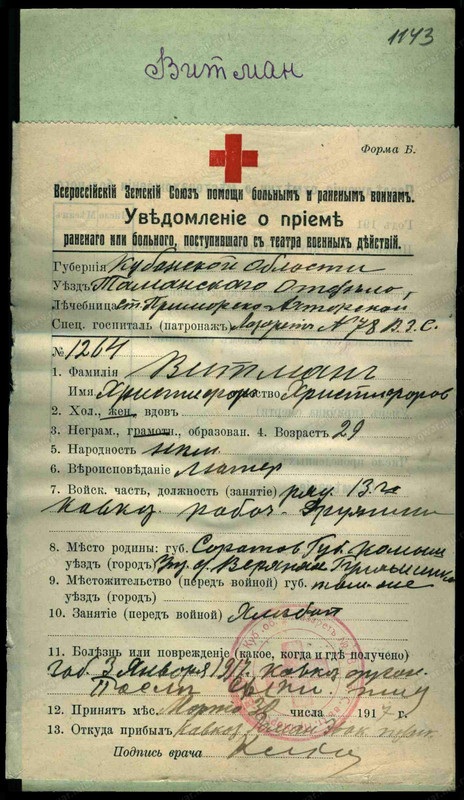 1143
Витман
Форма Б.
Всероссійскій Земскій Союзъ помощи больнымъ и раненымъ воинамъ.
Увѣдомленіе о пріемѣ
раненаго или больного, поступившаго съ театра военныхъ дѣйствій.
Губернія Кубанской Области
Уѣздъ Таманскаго Отдѣла,
Лѣчебница ст. Приморско-Ахтарской
Спец. госпиталь (патронаж) Лазаретъ № 78 В.З.С.
№ 1264
1. Фамилія Витманъ
Имя Христіфоръ Отчество Христіфоров
2. Хол., жен., вдовъ
3. Неграм., грамотн., образован. 4. Возрастъ 29
5. Народность нѣм.
6. Вѣроисповѣданіе Лютер
7. Войск. часть, должность (занятіе) ряд. 13-го
Кавказ. рабоч. Дружины
8. Мѣсто родины: губ. Саратов. Губ. Камыш.
уѣздъ (городъ)
9. Мѣстожительство (передъ войной) губ. там-же
уѣздъ (городъ)
10. Занятіе (передъ войной) Хлѣбоп
11. Болѣзнь или поврежденіе (какое, когда и гдѣ получено)
заб. 3 Января 1917. Кавказ.
Послѣ
12. Принятъ мѣс. Марта числа 1917 г.
13. Откуда прибылъ Кавказ.
Подпись врача